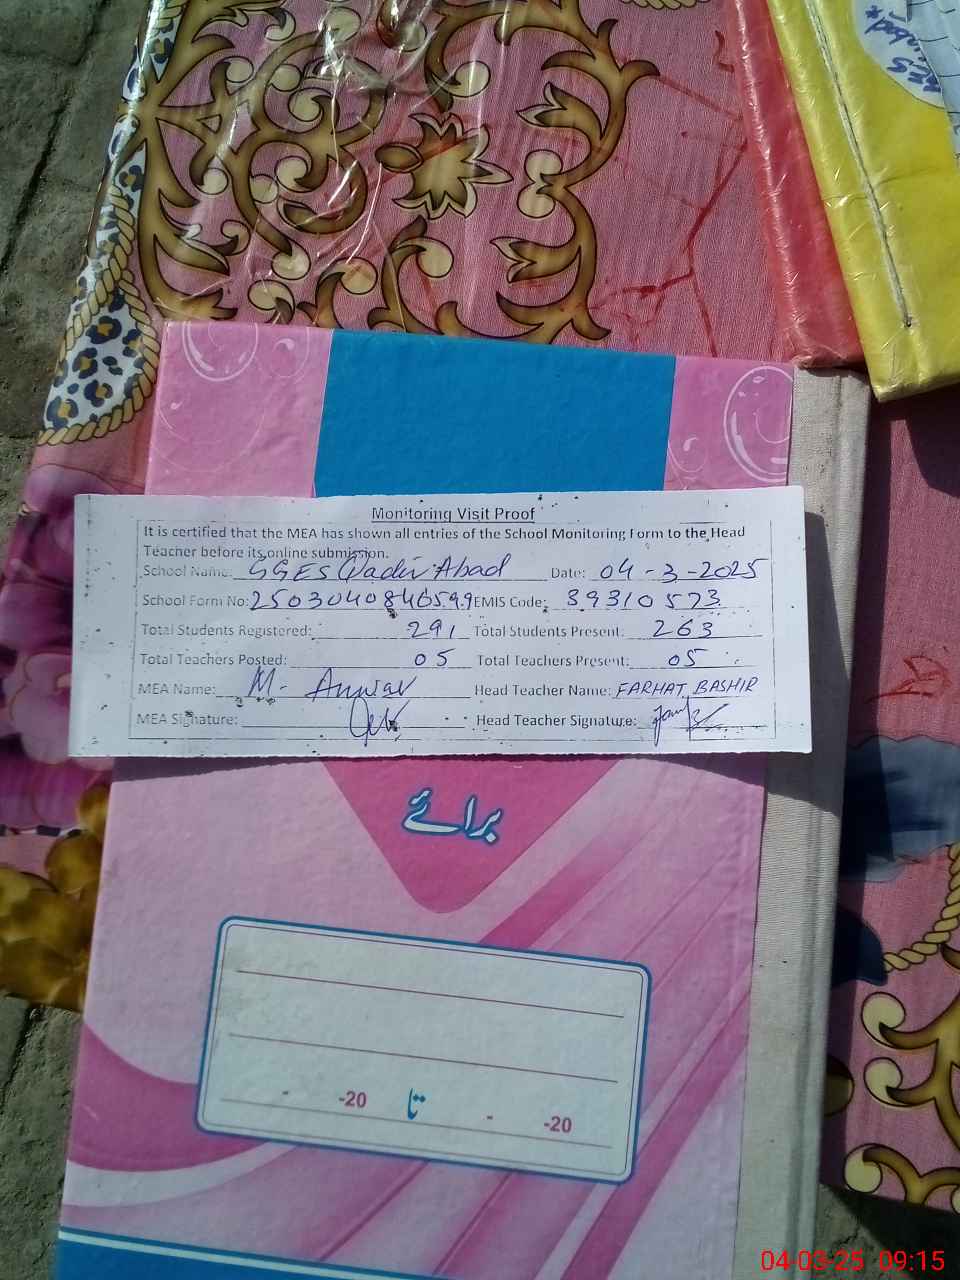 Monitoring Visit Proof
It is certified that the MEA has shown all entries of the School Monitoring Form to the Head
Teacher before its online submission.
School Name: GGES Qadir Abad Date: 04-3-2025
School Form No: 2503040846599 EMIS Code: 39310573
Total Students Registered: 291 Total Students Present: 263
Total Teachers Posted: 05 Total Teachers Present: 05
MEA Name: M- Anwar Head Teacher Name: FARHAT BASHIR
MEA Signature: Head Teacher Signature:
برائے
- -20 تا - -20
04-03-25 09:15